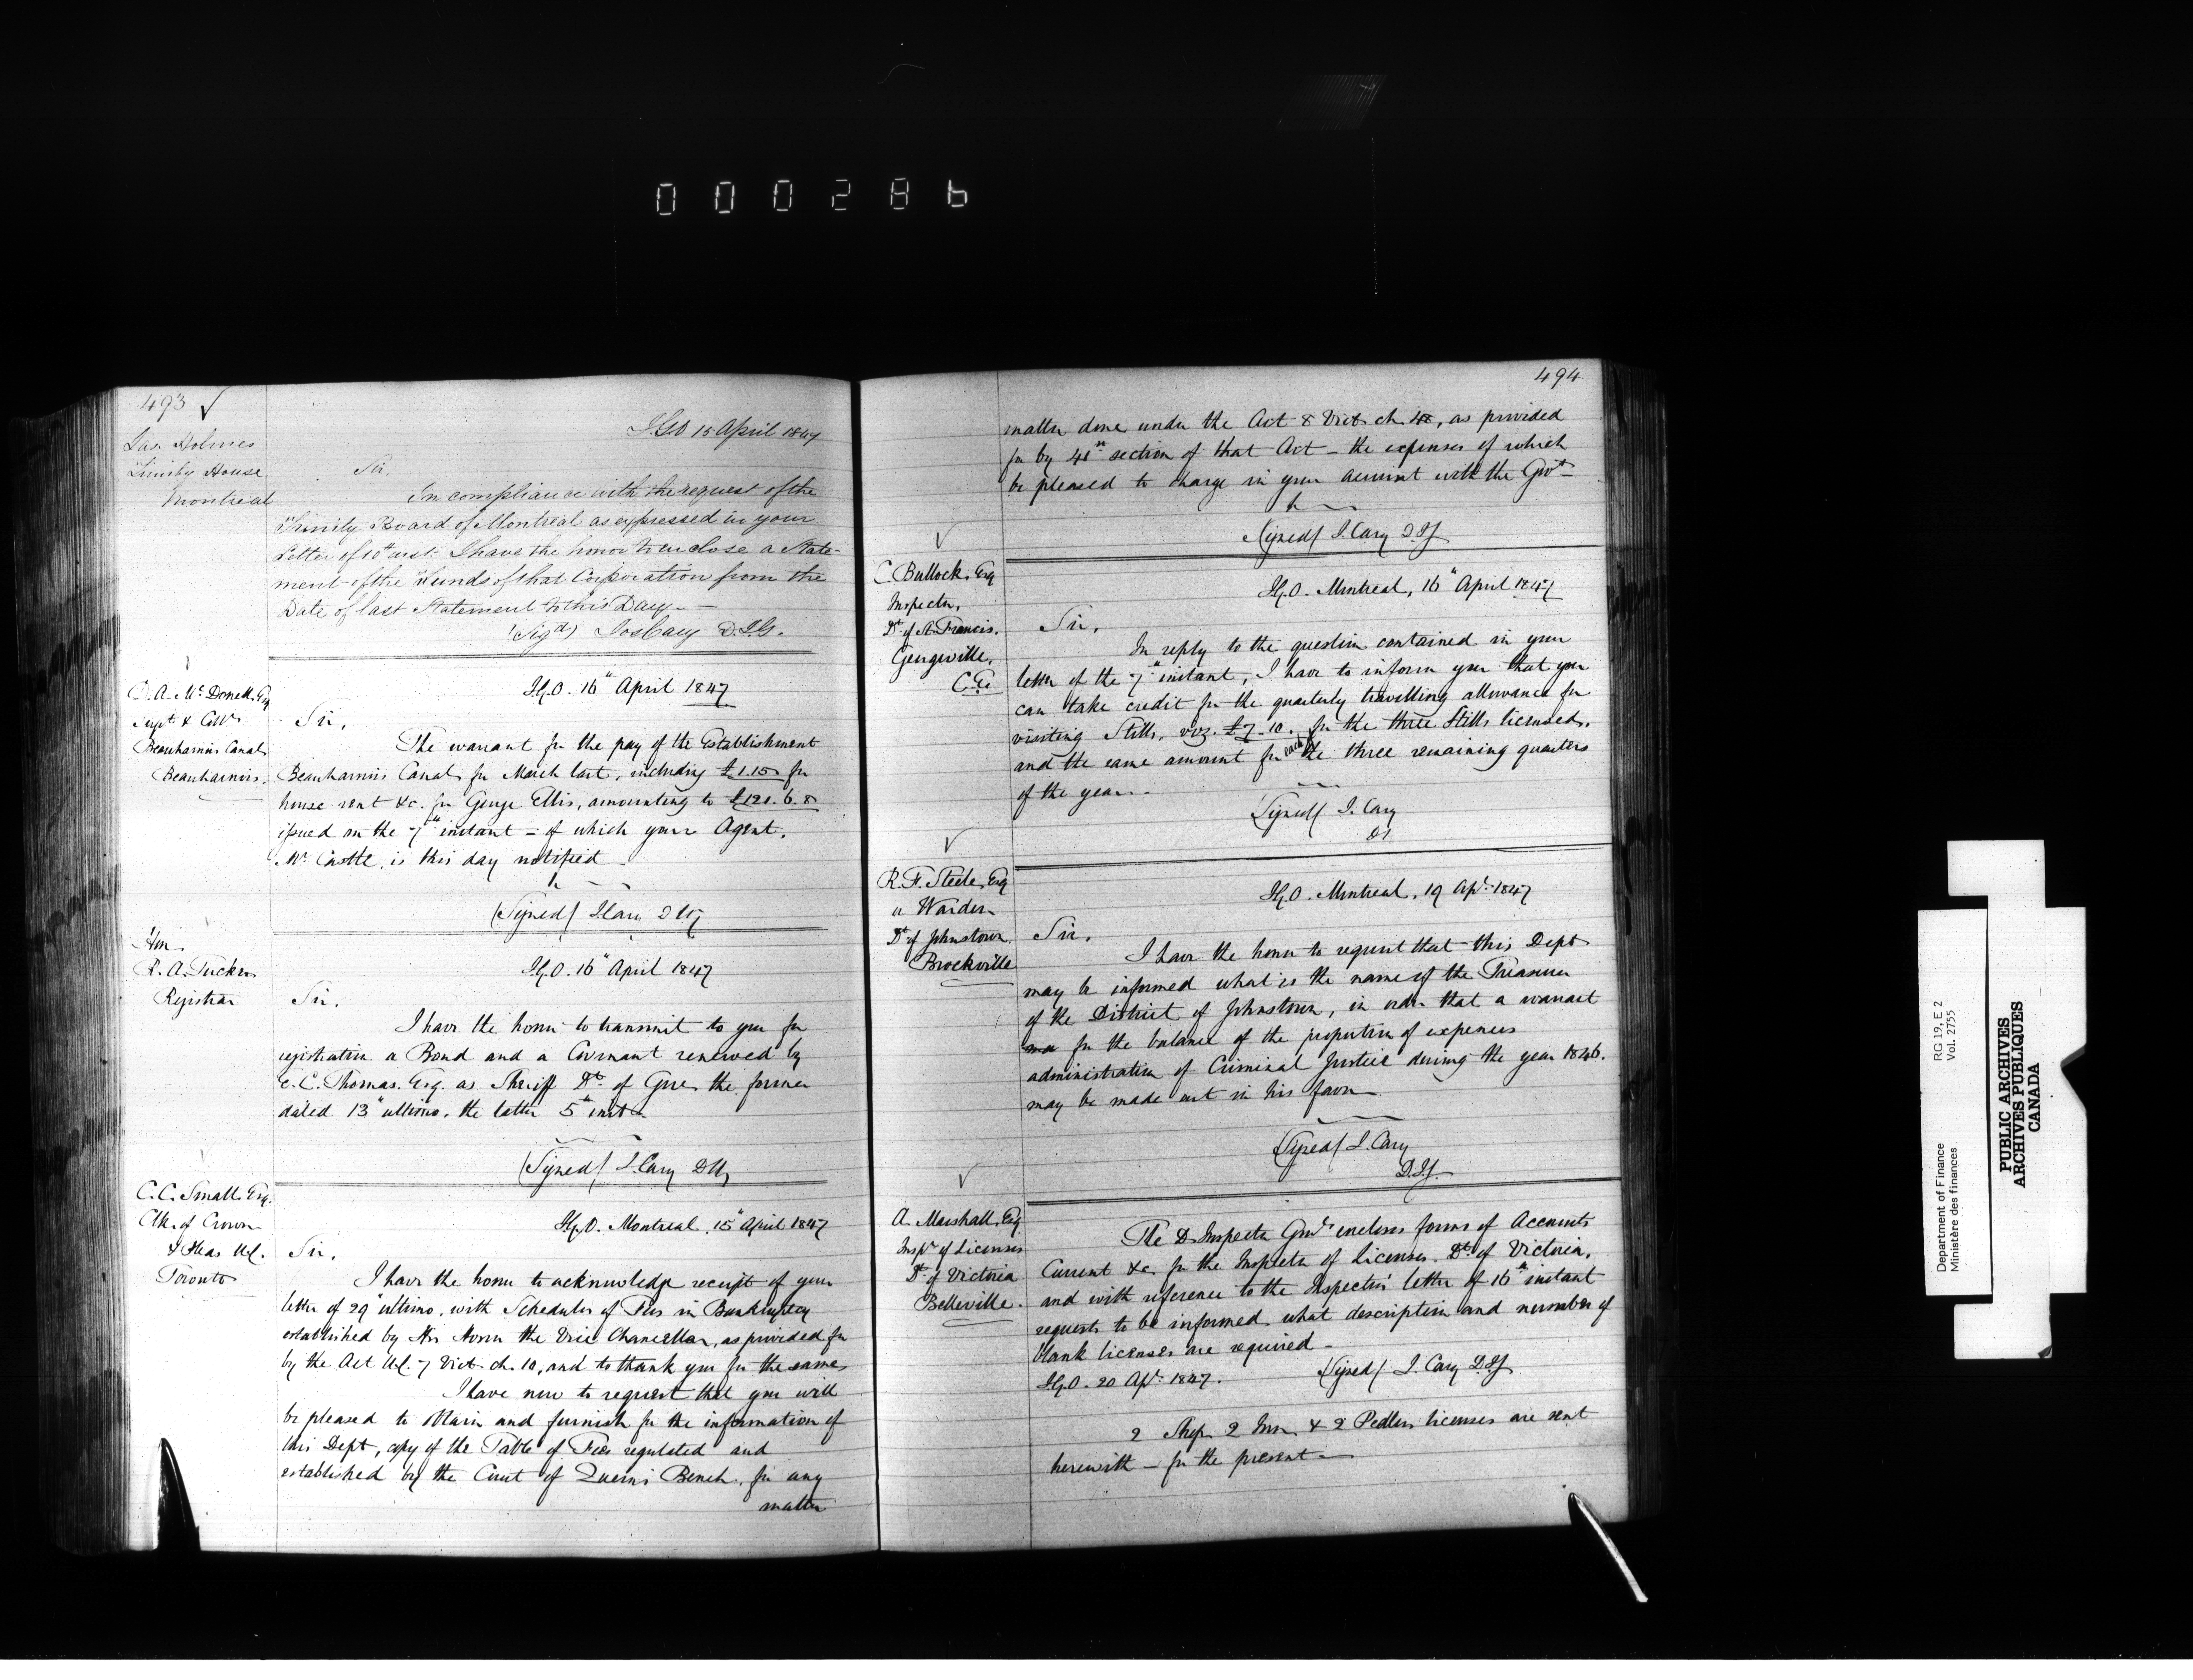 000286
493
Jas. Holmes
Trinity House
Montreal
I.G.O 15 April 1847
Sir.
In compliance with the request of the
Trinity Board of Montreal as expressed in your
Letter of 10th inst. I have the honor to enclose a State-
ment of the Funds of that Corporation from the
Date of last Statement to this Day. —
(Sigd) Jos Cary D.I.G.
D. A. McDonell. Esq
Supt. & Collr
Beauharnois Canal
Beauharnois.
I.G.O. 16th April 1847
Sir,
The warrant for the pay of the Establishment
Beauharnois Canal for March last, including £1.15 for
house rent &c. for George Ellis, amounting to £121.6.8
issued on the 7th instant — of which your Agent,
Mr Castle, is this day notified —
(Signed) J Cary D IG
Hon.
R. A. Tucker
Registrar
I.G.O. 16th April 1847
Sir.
I have the honor to transmit to you for
registration a Bond and a Covenant renewed by
E. C. Thomas. Esq. as Sheriff Dt. of Gore the former
dated 13th ultimo, the latter 5th inst.
(Signed) J. Cary DIG
C. C. Small. Esq.
Clk. of Crown
& Pleas U.C.
Toronto
I.G.O. Montreal, 15th April 1847
Sir,
I have the honor to acknowledge receipt of your
letter of 29th ultimo, with Schedules of Fees in Bankruptcy
established by His Honor the Vice Chancellor, as provided for
by the Act U.C. 7 Vict. ch. 10, and to thank you for the same
I have now to request that you will
be pleased to obtain and furnish for the information of
this Dept, copy of the Table of Fees regulated and
established by the Court of Queen's Bench, for any
matter
494
matter done under the Act 8 Vict. ch. 48, as provided
for by 41st section of that Act — the expenses of which
be pleased to charge in your account with the Govt —
(Signed) J. Cary D.IG
C. Bullock. Esq
Inspector,
Dt of St. Francis.
Georgeville,
C.E.
I.G.O. Montreal, 16th April 1847
Sir,
In reply to the question contained in your
letter of the 7th instant, I have to inform you that you
can take credit for the quarterly travelling allowance for
visiting Stills, viz. £7.10. for the three Stills licensed,
and the same amount for each of the three remaining quarters
of the year. —
(Signed) J. Cary
DI
R. F. Steele, Esq
Warden
Dt of Johnstown
Brockville
I.G.O. Montreal, 19 Apl. 1847
Sir,
I have the honor to request that this Dept
may be informed what is the name of the Treasurer
of the District of Johnstown, in order that a warrant
for the balance of the proportion of expenses
administration of Criminal Justice during the year 1846.
may be made out in his favor
(Signed) J. Cary
D.IG
A. Marshall, Esq
Inspr of Licenses
Dt of Victoria
Belleville.
The D Inspector Genl. encloses forms of Accounts
Current &c. for the Inspector of Licenses Dt. of Victoria,
and with reference to the Inspectors' letter of 16th instant
requests to be informed what description and number of
blank licenses are required —
I.G.O. 20 Apl. 1847.
(Signed) J. Cary D.IG
2 Shop 2 Inn & 2 Pedlers licenses are sent
herewith — for the present —
Department of Finance
Ministère des finances
RG 19, E 2
Vol. 2755
PUBLIC ARCHIVES
ARCHIVES PUBLIQUES
CANADA